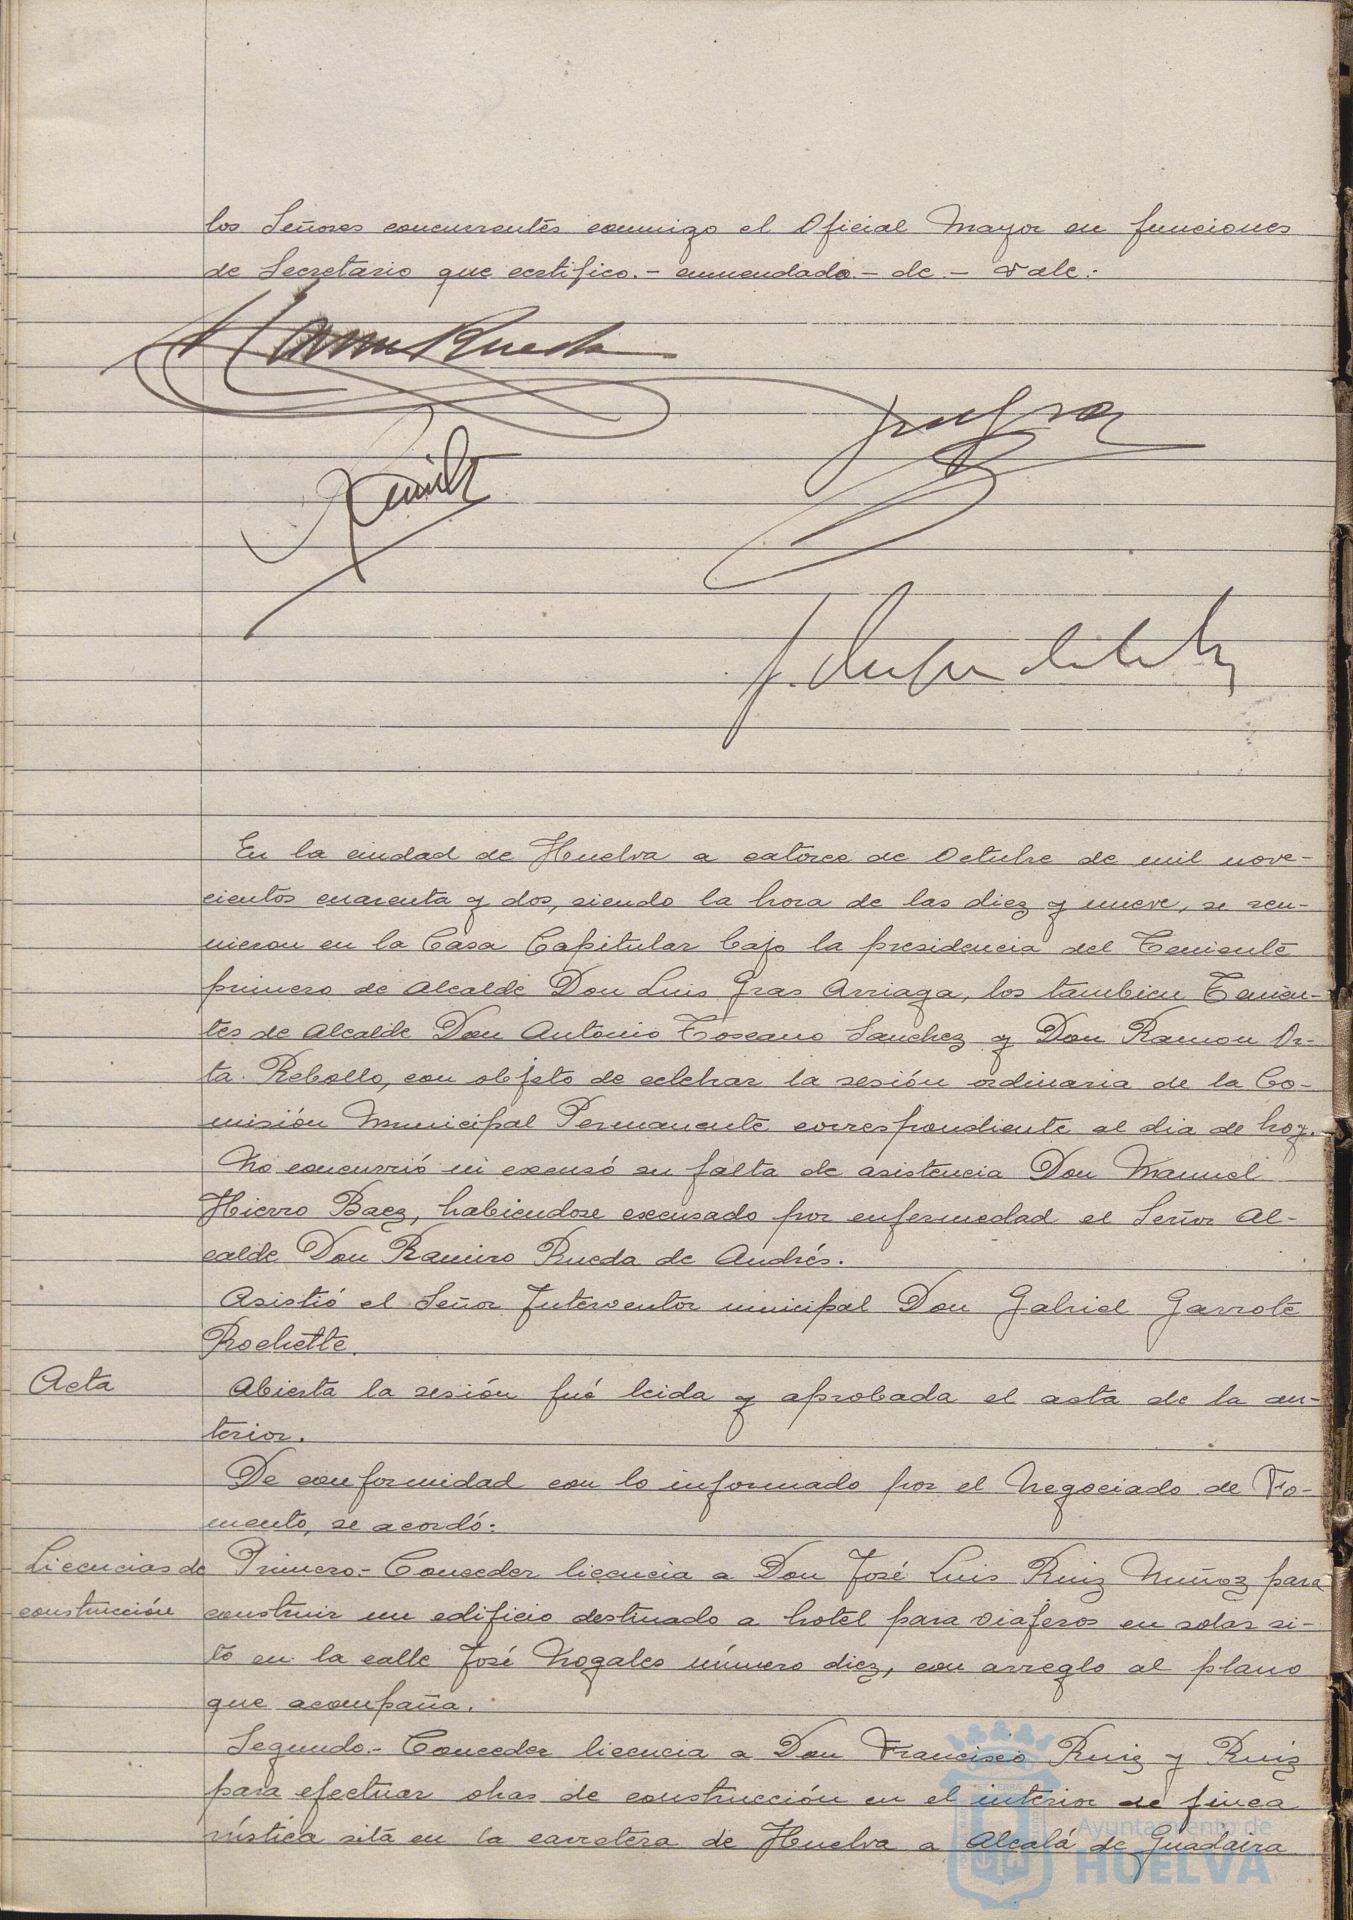 los Señores concurrentes conmigo el Oficial Mayor en funciones
de Secretario que certifico.- enmendado.- de.- Vale.-
Rueda
En la ciudad de Huelva a catorce de Octubre de mil nove-
cientos cuarenta y dos, siendo la hora de las diez y nueve, se reu-
nieron en la Casa Capitular bajo la presidencia del Teniente
primero de Alcalde Don Luis Gras Arriaga, los tambien Tenien-
tes de Alcalde Don Antonio Toscano Sanchez y Don Ramon Or-
ta Rebollo, con objeto de celebrar la sesión ordinaria de la Co-
misión Municipal Permanente correspondiente al dia de hoy.
No concurrió ni excusó su falta de asistencia Don Manuel
Hierro Baez, habiendose excusado por enfermedad el Señor Al-
calde Don Ramiro Rueda de Andrés.
Asistió el Señor Interventor municipal Don Gabriel Garrote
Rochette.
Acta
Abierta la sesión fué leida y aprobada el acta de la an-
terior.
De conformidad con lo informado por el Negociado de Fo-
mento, se acordó:
Licencias de
construcción
Primero.- Conceder licencia a Don José Luis Ruiz Muñoz para
construir un edificio destinado a hotel para viajeros en solar si-
to en la calle José Nogales número diez, con arreglo al plano
que acompaña.
Segundo.- Conceder licencia a Don Francisco Ruiz y Ruiz
para efectuar obras de construcción en el interior de finca
rústica sita en la carretera de Huelva a Alcalá de Guadaira
Ayuntamiento de
HUELVA